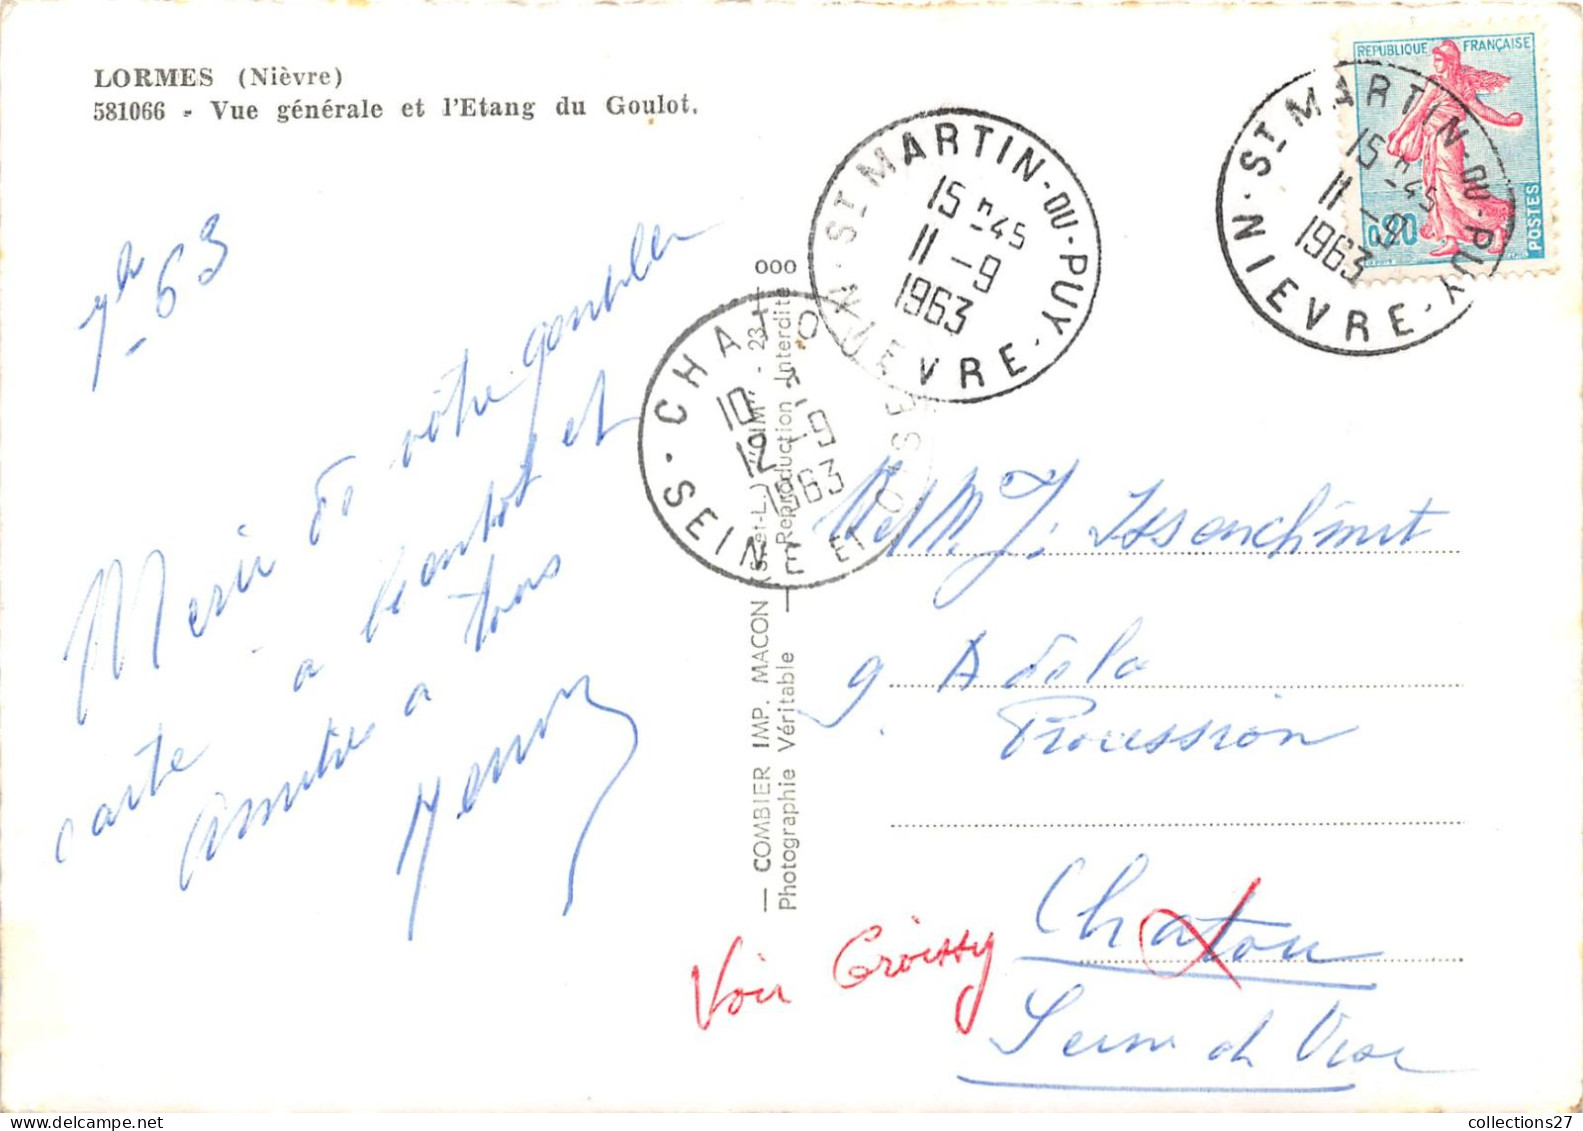 LORMES (Nièvre)
581066 - Vue générale et l'Etang du Goulot.
63
Merci de vôtre gentille
carte a bientot et
amitiés a tous
— COMBIER IMP. MACON (S.-et-L.) "CIM" - 23-1- 000
Photographie Véritable — Reproduction Interdite
ST MARTIN-DU-PUY
15 H 45
11 - 9
1963
NIEVRE
CHATOU
10 H
12 - 9
1963
SEINE ET OISE
REPUBLIQUE FRANÇAISE
0,20
POSTES
ST MARTIN-DU-PUY
15 H 45
11 - 9
1963
NIEVRE
M J.
9. A de la
Procession
Chatou
Voir Croissy
Seine et Oise
collections27